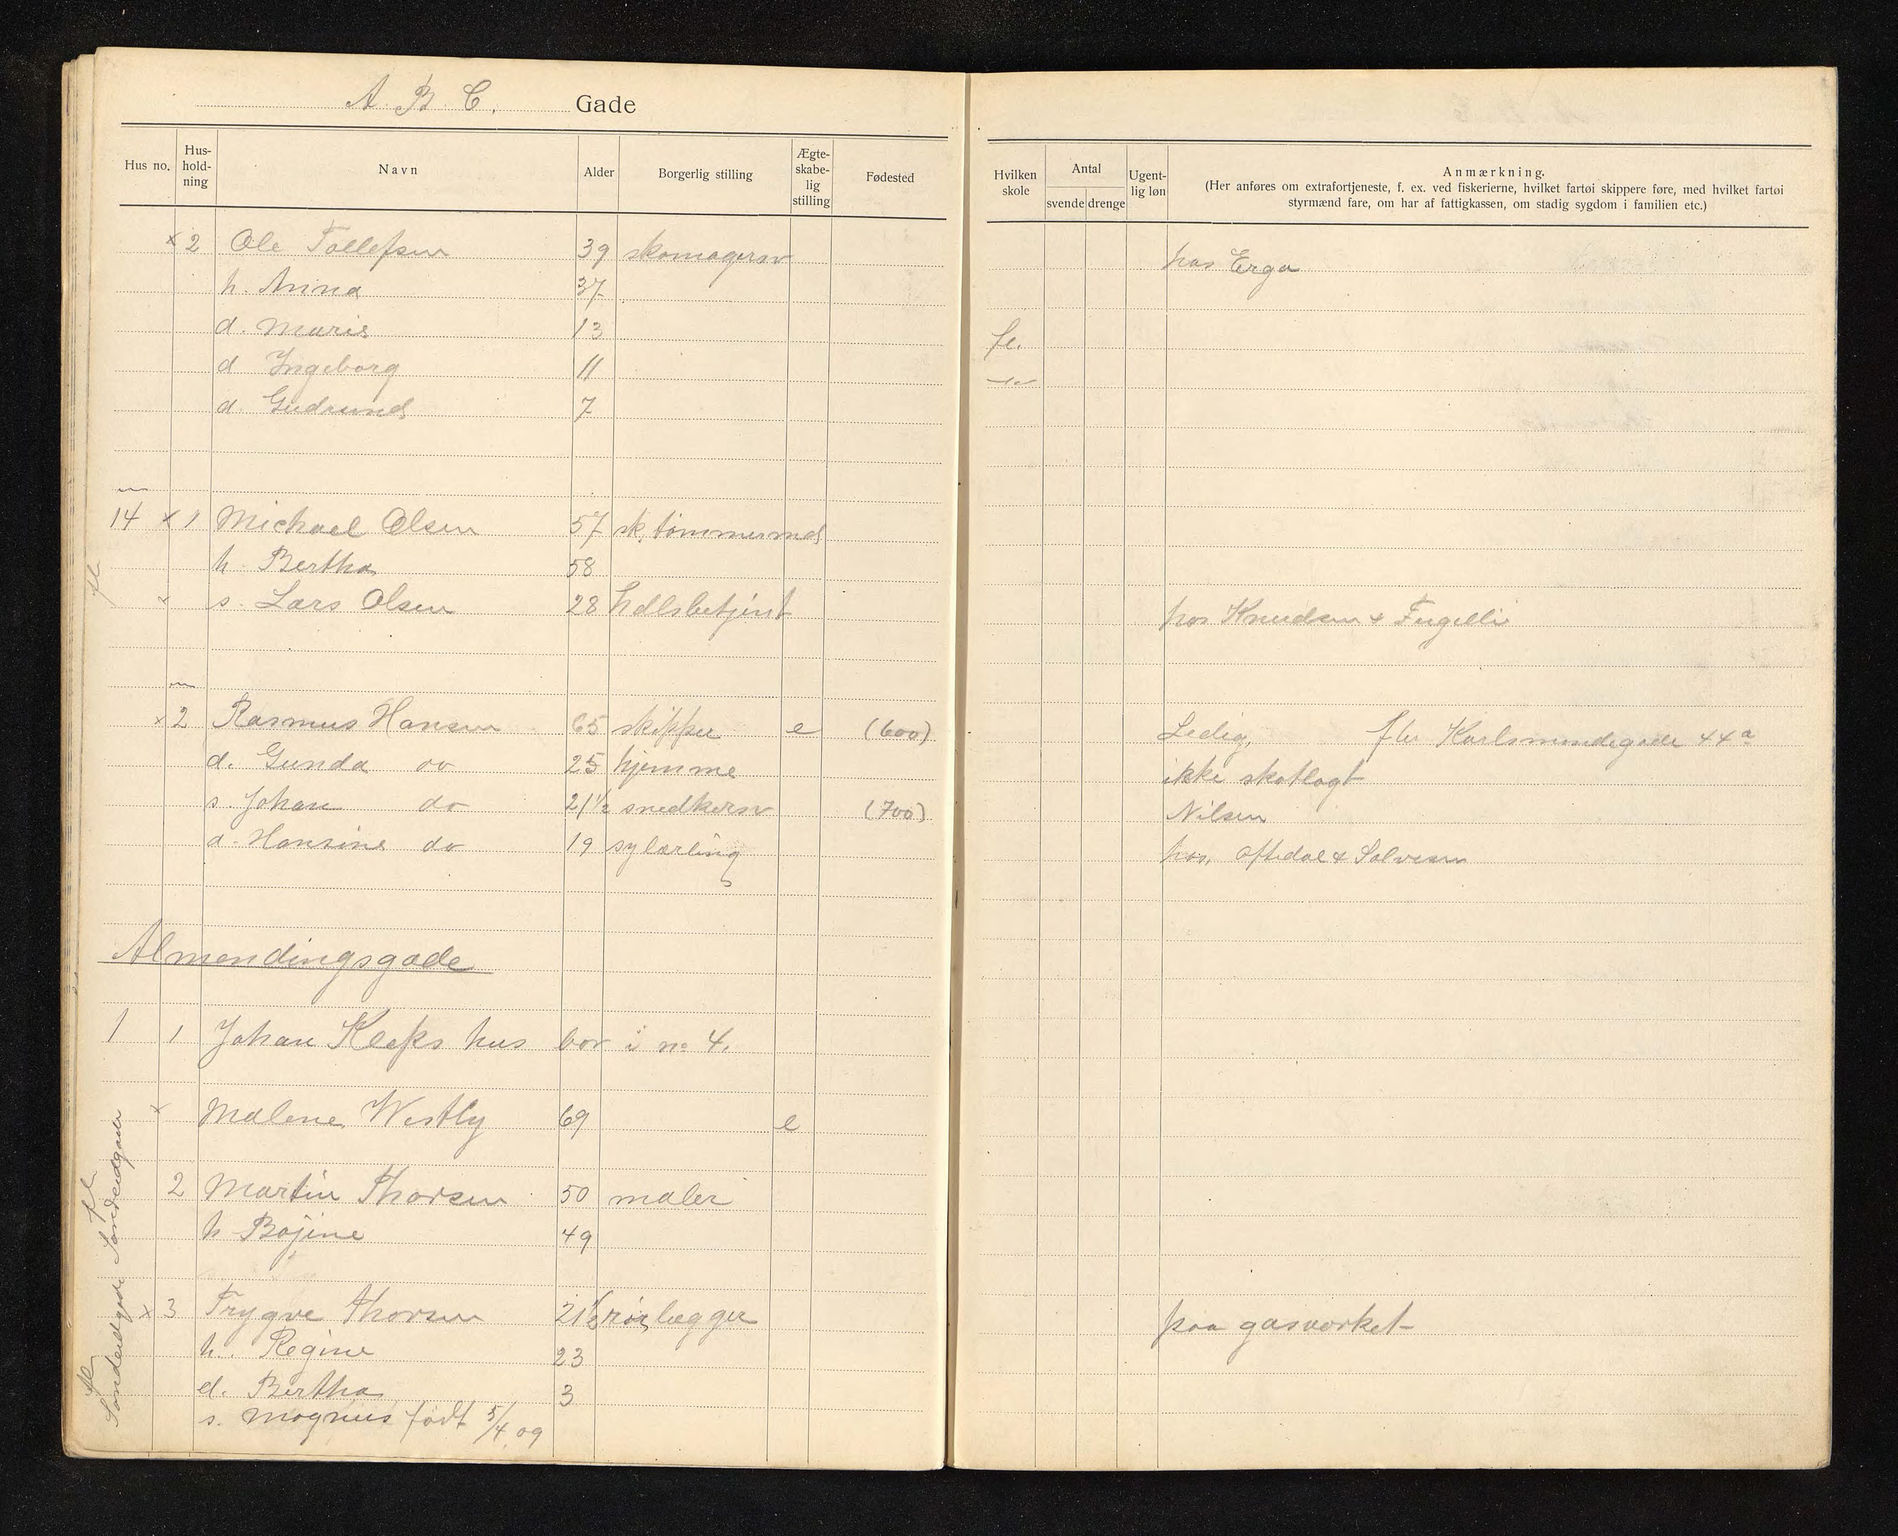 A. B. C. Gade
Hus no. Hus-hold-ning Navn Alder Borgerlig stilling Ægte-skabe-lig stilling Fødested
Hvilken skole Antal svende drenge Ugent-lig løn Anmærkning.
(Her anføres om extrafortjeneste, f. ex. ved fiskerierne, hvilket fartøi skippere føre, med hvilket fartøi
styrmænd fare, om har af fattigkassen, om stadig sygdom i familien etc.)
x 2 Ole Tollefsen 39 skomagersv hos Erga
h. Anna 37
d. Marie 13 fl.
d Ingeborg 11
d. Gudrund 7
14 x 1 Michael Olsen 57 sk. tømmermd
h. Bertha 58
s. Lars Olsen 28 hdlsbetjent hos Knudsen & Fugelli
x 2 Rasmus Hansen 65 skipper e (600) Ledig, fl. Karlsmindegade 44a
d. Gunda do 25 hjemme ikke skatlagt
s. Johan do 21½ snedkersv (700) Nilsen
d. Hansine do 19 sylærling hos, Oftedal & Salvesen
Almendingsgade
1 1 Johan Kleps hus bor i no 4.
x Malene Westly 69 e
2 Martin Thorsen 50 maler
h Bojine 49
x 3 Trygve Thorsen 21½ rørlægger paa gasverket
h. Regine 23
d. Bertha 3
s. Magnus født 5/4 09
fl
fl
fl